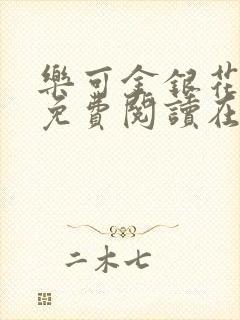 樂可金銀花
免費閱讀在
二木七